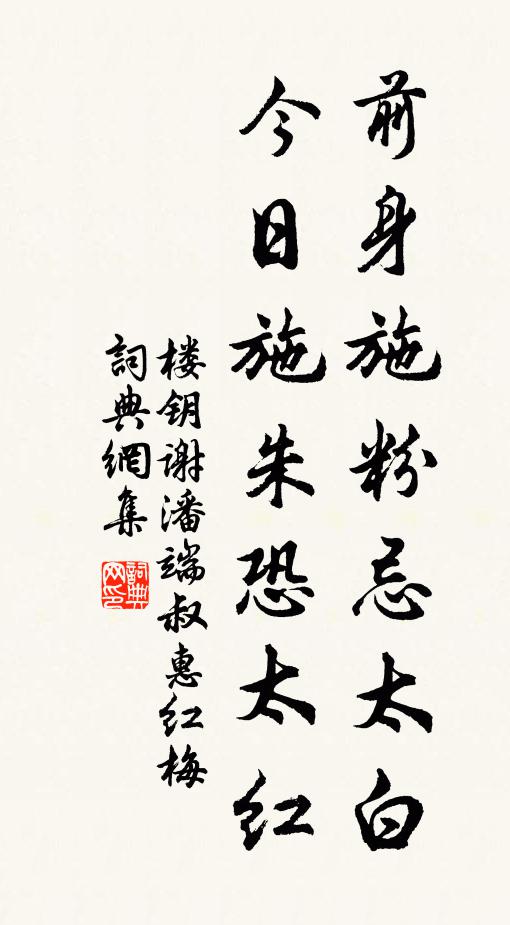 前身施粉忌太白
今日施朱恐太红
楼钥谢潘端叔惠红梅
詞典網集
詞典网印